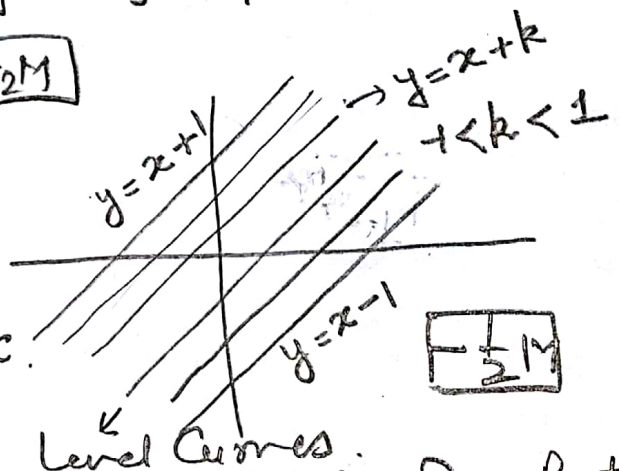 2M
y=x+1
→ y=x+k
-1<k<1
y=x-1
- 1/2 M
Level Curves.